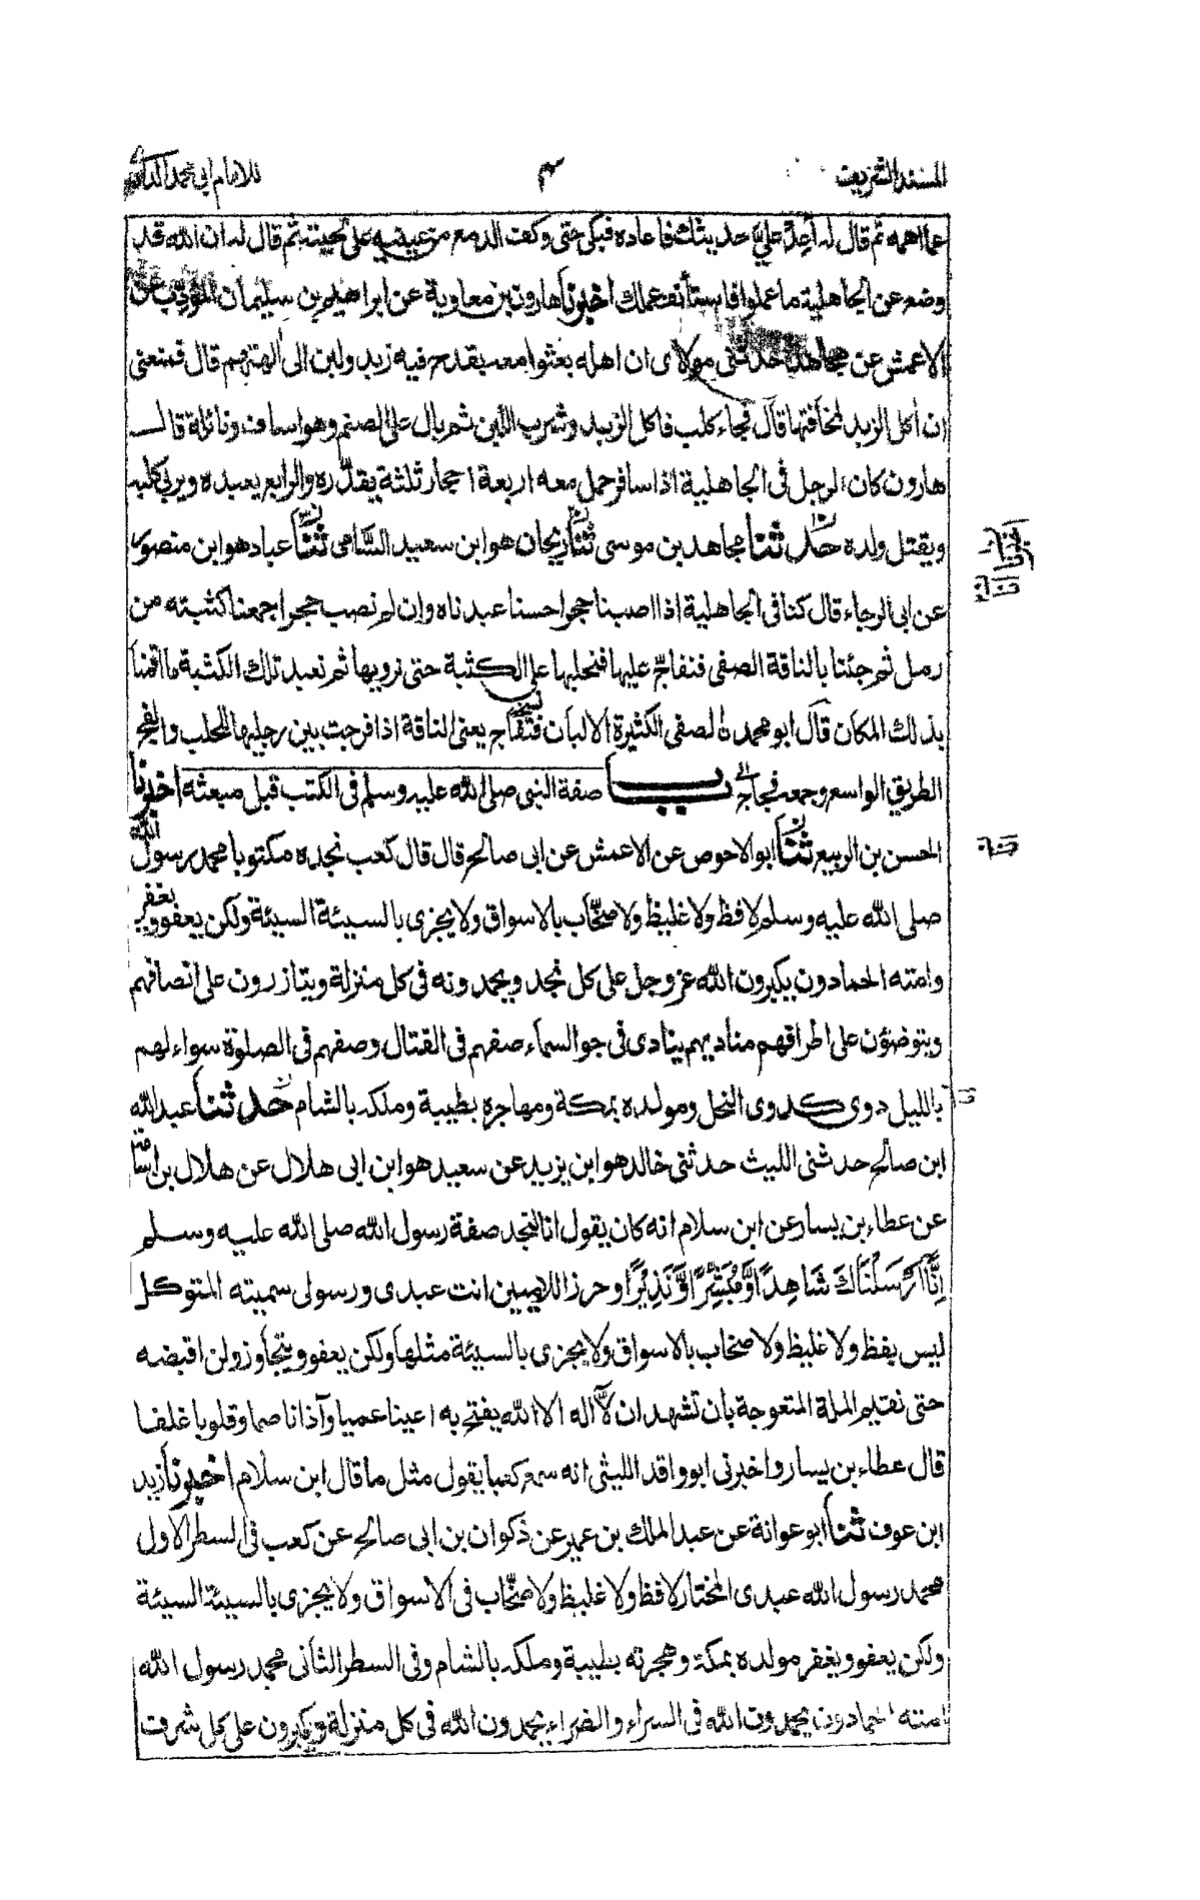 المسند الشريف
٣
للامام ابي محمد الدارمي
عما اهمه ثم قال له أعِدْ عليّ حديثك فاعاده فبكى حتى وكف الدمع من عينيه على لحيته ثم قال له ان الله قد
وضع عن الجاهلية ما عملوا فاستأنف عملك اخبرنا هارون بن معاوية عن ابراهيم بن سليمان المؤدب عن
الاعمش عن مجاهد حدثنى مولاى ان اهله بعثوا معه بقدح فيه زبد ولبن الى الهتهم قال فمنعنى
ان أكل الزبد لمخافتها قال فجاء كلب فاكل الزبد وشرب اللبن ثم بال على الصنم وهو اساف ونائلة قال
هارون كان الرجل فى الجاهلية اذا سافر حمل معه اربعة احجار ثلثة يقدّره والرابع يعبده ويربى كلبه
ويقتل ولده حدثنا مجاهد بن موسى ثنا ريحان هو ابن سعيد السّامى ثنا عباد هو ابن منصور
عن ابى الرجاء قال كنا فى الجاهلية اذا اصبنا حجرا حسنا عبدناه وان لم نصب حجرا جمعنا كثبته من
رمل ثم جئنا بالناقة الصفى فنفاجّ عليها فنحلبها على الكثبة حتى نرويها ثم نعبد تلك الكثبة ما اقمنا
بذلك المكان قال ابو محمد الصفى الكثيرة الالبان فتفاج يعنى الناقة اذا فرجت بين رجليها للحلب والفج
الطريق الواسع وجمعه فجاج باب صفة النبى صلى الله عليه وسلم فى الكتب قبل مبعثه اخبرنا
الحسن بن الربيع ثنا ابو الاحوص عن الاعمش عن ابى صالح قال قال كعب نجده مكتوبا محمد رسول الله
صلى الله عليه وسلم لا فظ ولا غليظ ولا صخّاب بالاسواق ولا يجزى بالسيئة السيئة ولكن يعفو ويغفر
وامته الحمادون يكبرون الله عز وجل على كل نجد ويحمدونه فى كل منزلة ويتازرون على انصافهم
ويتوضؤن على اطرافهم مناديهم ينادى فى جو السماء صفهم فى القتال وصفهم فى الصلوة سواء لهم
بالليل دوى كدوى النحل ومولده بمكة ومهاجره بطيبة وملكه بالشام حدثنا عبد الله
ابن صالح حدثنى الليث حدثنى خالد هو ابن يزيد عن سعيد هو ابن ابى هلال عن هلال بن اسامة
عن عطاء بن يسار عن ابن سلام انه كان يقول انا لنجد صفة رسول الله صلى الله عليه وسلم
اِنَّا اَرْسَلْنَاكَ شَاهِدًا وَّمُبَشِّرًا وَّنَذِيْرًا وحرزا للاميين انت عبدى ورسولى سميته المتوكل
ليس بفظ ولا غليظ ولا صخاب بالاسواق ولا يجزى بالسيئة مثلها ولكن يعفو ويتجاوز ولن اقبضه
حتى نقيم الملة المتعوجة بان تشهد ان لا اله الا الله يفتح به اعينا عميا وآذانا صما وقلوبا غلفا
قال عطاء بن يسار واخبرنى ابو واقد الليثى انه سمع كعبا يقول مثل ما قال ابن سلام اخبرنا زيد
ابن عوف ثنا ابو عوانة عن عبد الملك بن عمير عن ذكوان بن ابى صالح عن كعب فى السطر الاول
محمد رسول الله عبدى المختار لا فظ ولا غليظ ولا صخّاب فى الاسواق ولا يجزى بالسيئة السيئة
ولكن يعفو ويغفر مولده بمكة وهجرته بطيبة وملكه بالشام وفى السطر الثانى محمد رسول الله
امته الحمادون يحمدون الله فى السراء والضراء يحمدون الله فى كل منزلة ويكبرون على كل شرف